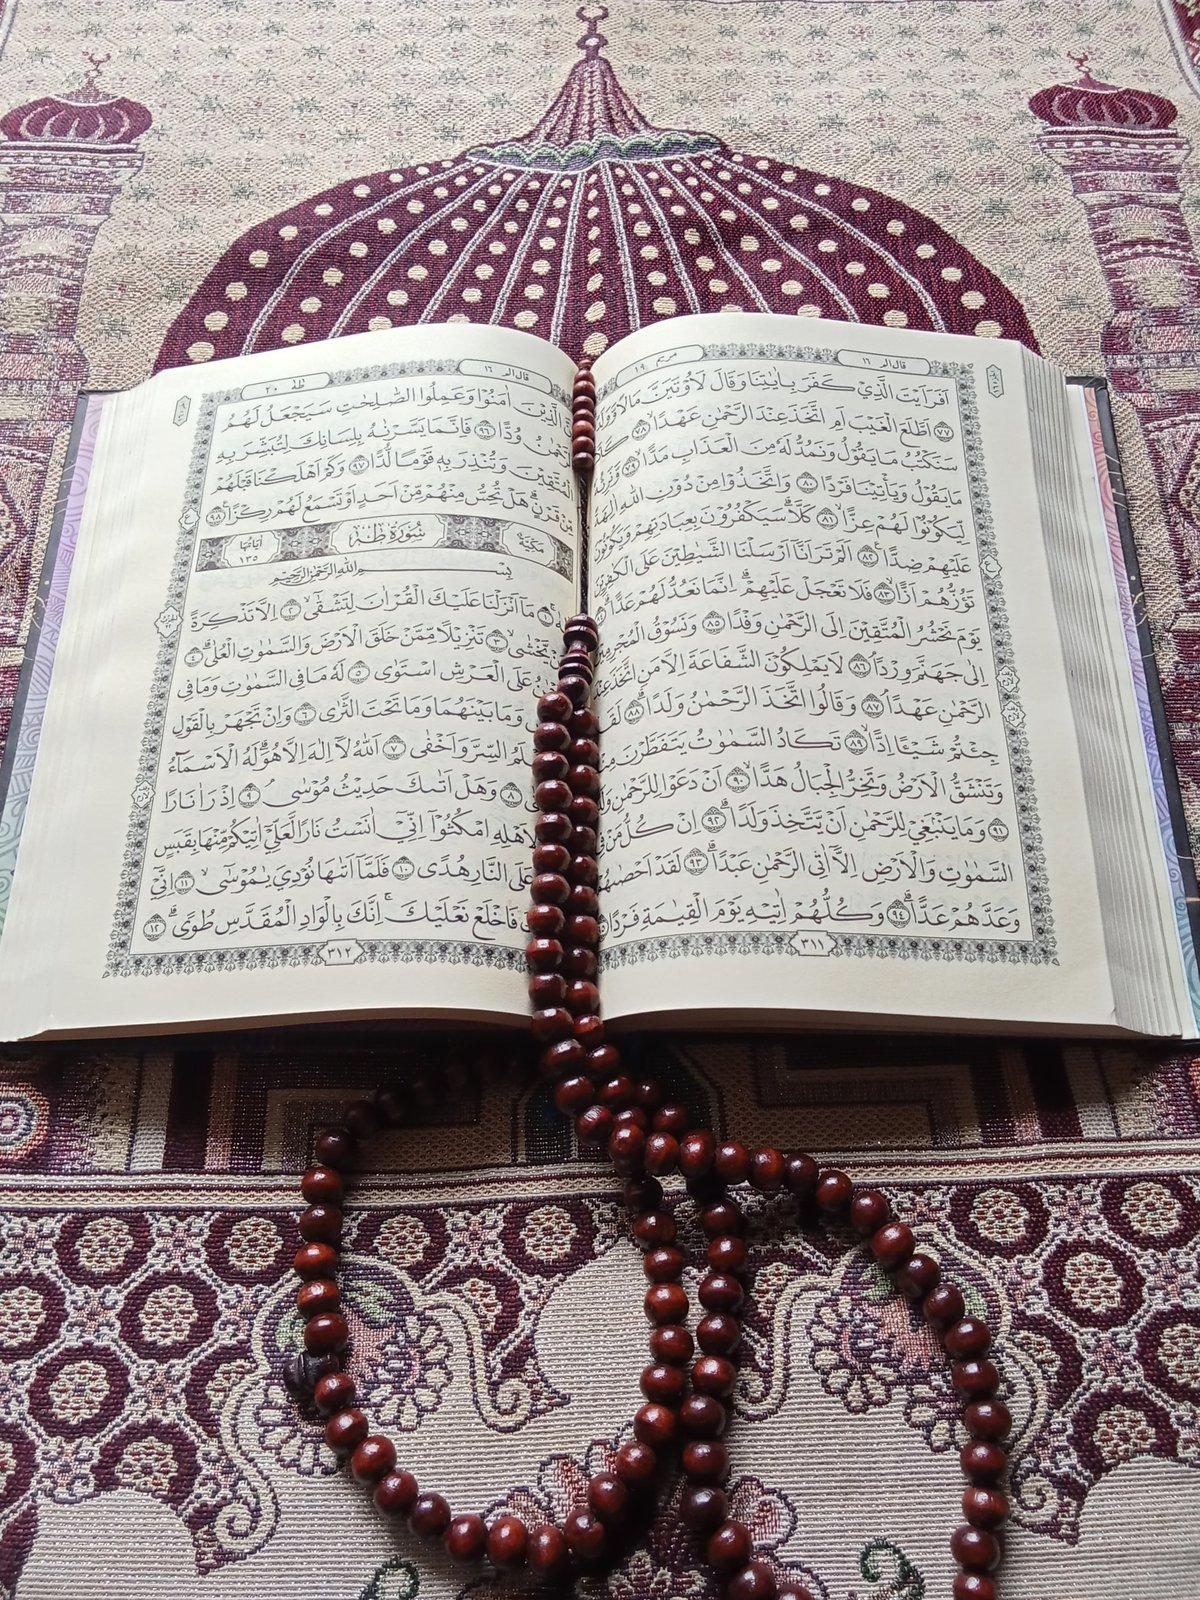 مريم ١٩
قال الم ١٦
اَفَرَاَيْتَ الَّذ۪ي كَفَرَ بِاٰيَاتِنَا وَقَالَ لَاُو۫تَيَنَّ مَالًا وَوَلَدًا
﴿٧٧﴾ اَطَّلَعَ الْغَيْبَ اَمِ اتَّخَذَ عِنْدَ الرَّحْمٰنِ عَهْدًا ﴿٧٨﴾ كَلَّا
سَنَكْتُبُ مَا يَقُولُ وَنَمُدُّ لَهُ مِنَ الْعَذَابِ مَدًّا ﴿٧٩﴾ وَنَرِثُهُ
مَا يَقُولُ وَيَأْت۪ينَا فَرْدًا ﴿٨٠﴾ وَاتَّخَذُوا مِنْ دُونِ اللّٰهِ اٰلِهَةً
لِيَكُونُوا لَهُمْ عِزًّا ﴿٨١﴾ كَلَّا سَيَكْفُرُونَ بِعِبَادَتِهِمْ وَيَكُونُونَ
عَلَيْهِمْ ضِدًّا ﴿٨٢﴾ اَلَمْ تَرَ اَنَّا اَرْسَلْنَا الشَّيَاط۪ينَ عَلَى الْكَافِر۪ينَ
تَؤُزُّهُمْ اَزًّا ﴿٨٣﴾ فَلَا تَعْجَلْ عَلَيْهِمْ اِنَّمَا نَعُدُّ لَهُمْ عَدًّا
يَوْمَ نَحْشُرُ الْمُتَّق۪ينَ اِلَى الرَّحْمٰنِ وَفْدًا ﴿٨٥﴾ وَنَسُوقُ الْمُجْرِم۪ينَ
اِلٰى جَهَنَّمَ وِرْدًا ﴿٨٦﴾ لَا يَمْلِكُونَ الشَّفَاعَةَ اِلَّا مَنِ اتَّخَذَ عِنْدَ
الرَّحْمٰنِ عَهْدًا ﴿٨٧﴾ وَقَالُوا اتَّخَذَ الرَّحْمٰنُ وَلَدًا ﴿٨٨﴾ لَقَدْ
جِئْتُمْ شَيْـًٔا اِدًّا ﴿٨٩﴾ تَكَادُ السَّمٰوَاتُ يَتَفَطَّرْنَ مِنْهُ
وَتَنْشَقُّ الْاَرْضُ وَتَخِرُّ الْجِبَالُ هَدًّا ﴿٩٠﴾ اَنْ دَعَوْا لِلرَّحْمٰنِ وَلَدًا
﴿٩١﴾ وَمَا يَنْبَغ۪ي لِلرَّحْمٰنِ اَنْ يَتَّخِذَ وَلَدًا ﴿٩٢﴾ اِنْ كُلُّ مَنْ فِي
السَّمٰوَاتِ وَالْاَرْضِ اِلَّا اٰتِي الرَّحْمٰنِ عَبْدًا ﴿٩٣﴾ لَقَدْ اَحْصٰيهُمْ
وَعَدَّهُمْ عَدًّا ﴿٩٤﴾ وَكُلُّهُمْ اٰت۪يهِ يَوْمَ الْقِيٰمَةِ فَرْدًا
٣١١
طه ٢٠
قال الم ١٦
الَّذ۪ينَ اٰمَنُوا وَعَمِلُوا الصَّالِحَاتِ سَيَجْعَلُ لَهُمُ
الرَّحْمٰنُ وُدًّا ﴿٩٦﴾ فَاِنَّمَا يَسَّرْنَاهُ بِلِسَانِكَ لِتُبَشِّرَ بِهِ
الْمُتَّق۪ينَ وَتُنْذِرَ بِهِ قَوْمًا لُدًّا ﴿٩٧﴾ وَكَمْ اَهْلَكْنَا قَبْلَهُمْ
مِنْ قَرْنٍ هَلْ تُحِسُّ مِنْهُمْ مِنْ اَحَدٍ اَوْ تَسْمَعُ لَهُمْ رِكْزًا ﴿٩٨﴾
مكية سُورَةُ طٰهٰ آياتها ١٣٥
بِسْمِ اللّٰهِ الرَّحْمٰنِ الرَّح۪يمِ
﴿١﴾ مَا اَنْزَلْنَا عَلَيْكَ الْقُرْاٰنَ لِتَشْقٰى ﴿٢﴾ اِلَّا تَذْكِرَةً
لِمَنْ يَخْشٰى ﴿٣﴾ تَنْز۪يلًا مِمَّنْ خَلَقَ الْاَرْضَ وَالسَّمٰوَاتِ الْعُلٰى ﴿٤﴾
عَلَى الْعَرْشِ اسْتَوٰى ﴿٥﴾ لَهُ مَا فِي السَّمٰوَاتِ وَمَا فِي
وَمَا بَيْنَهُمَا وَمَا تَحْتَ الثَّرٰى ﴿٦﴾ وَاِنْ تَجْهَرْ بِالْقَوْلِ
يَعْلَمُ السِّرَّ وَاَخْفٰى ﴿٧﴾ اَللّٰهُ لَا اِلٰهَ اِلَّا هُوَ لَهُ الْاَسْمَاءُ
﴿٨﴾ وَهَلْ اَتٰيكَ حَد۪يثُ مُوسٰى ﴿٩﴾ اِذْ رَاٰ نَارًا
لِاَهْلِهِ امْكُثُوا اِنّ۪ي اٰنَسْتُ نَارًا لَعَلّ۪ي اٰت۪يكُمْ مِنْهَا بِقَبَسٍ
عَلَى النَّارِ هُدًى ﴿١٠﴾ فَلَمَّا اَتٰيهَا نُودِيَ يَا مُوسٰى ﴿١١﴾ اِنّ۪ي
فَاخْلَعْ نَعْلَيْكَ اِنَّكَ بِالْوَادِ الْمُقَدَّسِ طُوًى ﴿١٢﴾
٣١٢